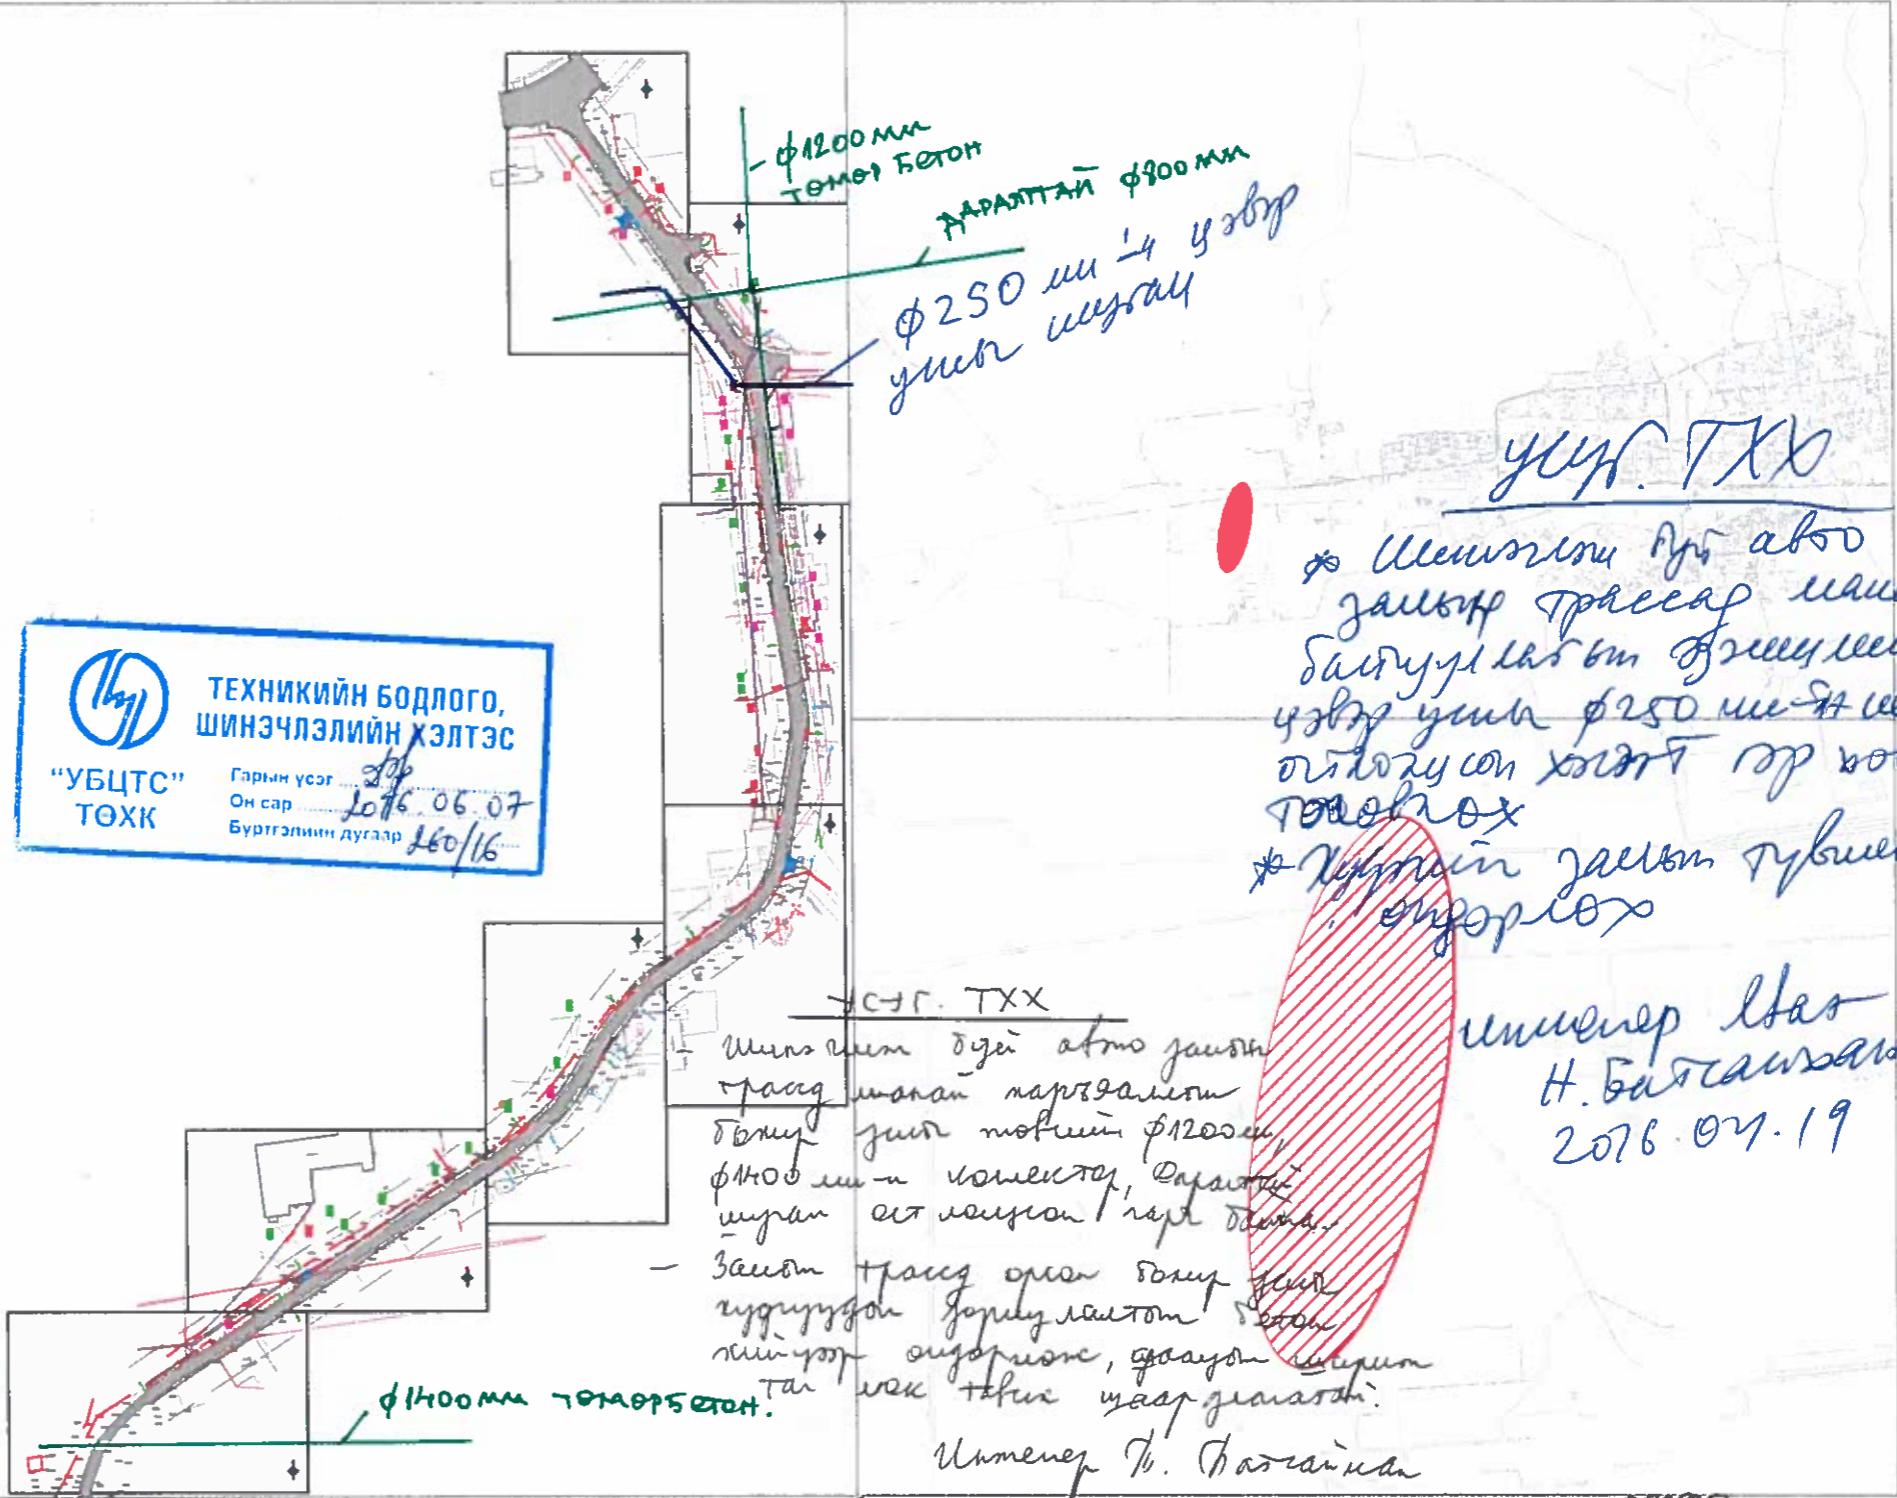 ф1200мм
төмөр бетон
даралттай ф800мм
ф250 мм-н цэвэр
усны шугам
УСУГ. ТХХ
* Шинэчлэж буй авто
замын трассад
байгууллагын эзэмшлийн
цэвэр усны ф250 мм-ийн
огтлолцсон хэсэгт гэр
төлөвлөх
* Хуучин замын түвшин
өндөрлөх
инженер
Н. Батсайхан
2016.04.19
ТЕХНИКИЙН БОДЛОГО,
ШИНЭЧЛЭЛИЙН ХЭЛТЭС
"УБЦТС"
ТӨХК
Гарын үсэг
Он сар 2016.06.07
Бүртгэлийн дугаар 260/16
УСУГ. ТХХ
- Шинэчлэж буй авто замын
трассд манай харъяалалтын
бохир усны төвийн ф1200мм,
ф1400 мм-н коллектор, даралттай
шугам огтлолцсон гарч байна.
- Замын трассд орсон бохир усны
худгуудын зориулалтын бетон
хийцээр өндөрлөж, даацын ширмэн
таг люк тавих шаардлагатай.
Инженер Батсайхан
ф1400мм төмөрбетон.